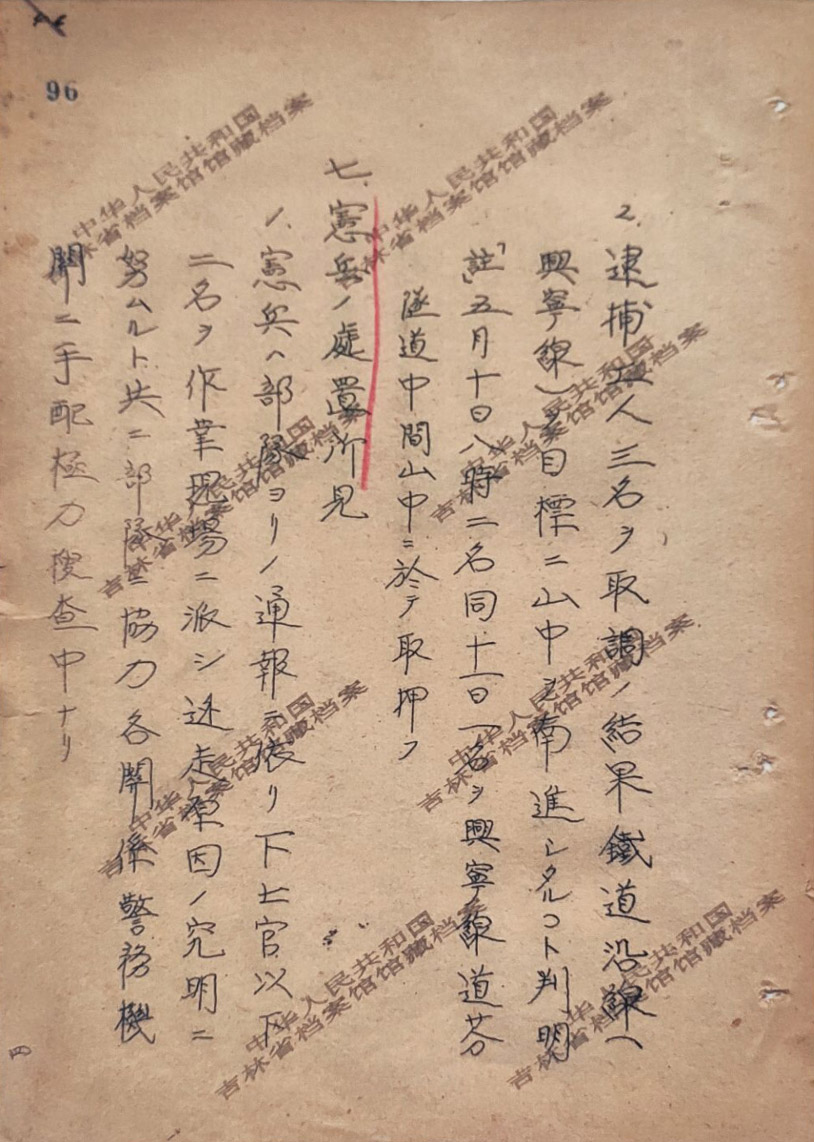 96
2.逮捕工人三名ヲ取調ノ結果鐵道沿線(
興寧線)ヲ目標ニ山中ヲ南進シタルコト判明
「註」五月十日八時二名同十一日一名ヲ興寧線道芬
隧道中間山中ニ於テ取押フ
七、憲兵ノ處置所見
1.憲兵ハ部隊ヨリノ通報ニ依リ下士官以下
二名ヲ作業現場ニ派シ逃走原因ノ究明ニ
努ムルト共ニ部隊ニ協力各關係警務機
關ニ手配極力捜査中ナリ
中华人民共和国
吉林省档案馆馆藏档案
中华人民共和国
吉林省档案馆馆藏档案
中华人民共和国
吉林省档案馆馆藏档案
中华人民共和国
吉林省档案馆馆藏档案
中华人民共和国
吉林省档案馆馆藏档案
中华人民共和国
吉林省档案馆馆藏档案
中华人民共和国
吉林省档案馆馆藏档案
中华人民共和国
吉林省档案馆馆藏档案